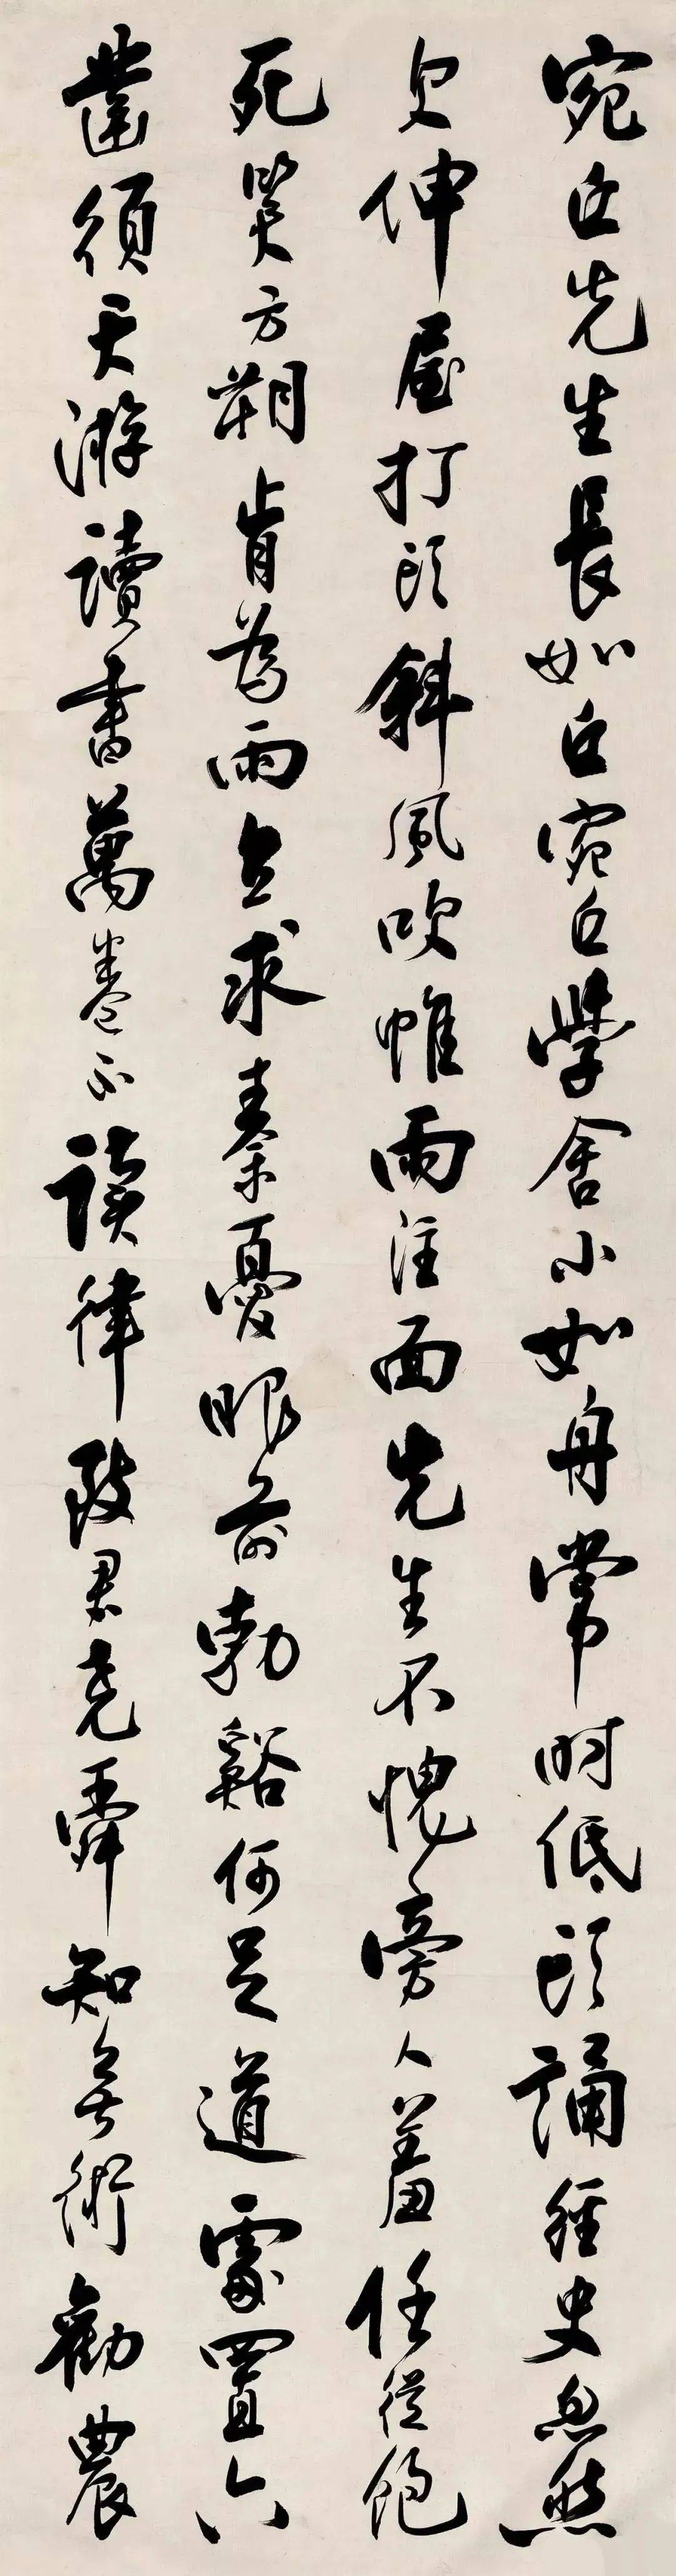 宛丘先生長如丘宛丘學舍小如舟常時低頭誦經史忽然
欠伸屋打頭斜風吹帷雨注面先生不愧旁人羞任從飽
死笑方朔肯為雨立求秦優眼前勃谿何足道處置六
鑿須天游讀書萬卷不讀律致君堯舜知無術勸農